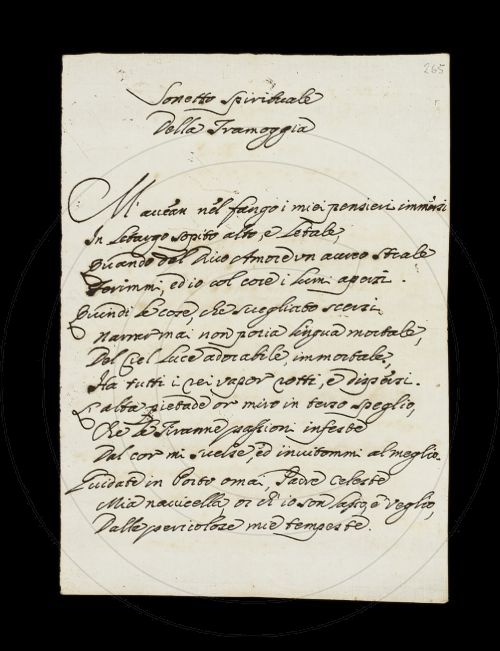 265
Sonetto Spirituale
Della Tramoggia
M'avean nel fango i miei pensieri immersi
In letargo sopito alto, e letale,
Quando del divo Amore un aureo strale
Ferimmi, ed io col core i lumi apersi.
Quindi le cose, che svegliato scersi
Narrar mai non poria lingua mortale,
Del Ciel luce adorabile, immortale,
Ha tutti i rei vapor rotti, e dispersi.
L'alta pietade or miro in terso speglio,
Che le Tiranne passioni infeste
Dal cor mi svelse, ed invitommi al meglio.
Guidate in porto omai, Padre Celeste
Mia navicella or ch'io son lasso, e veglio,
Dalle pericolose mie tempeste.